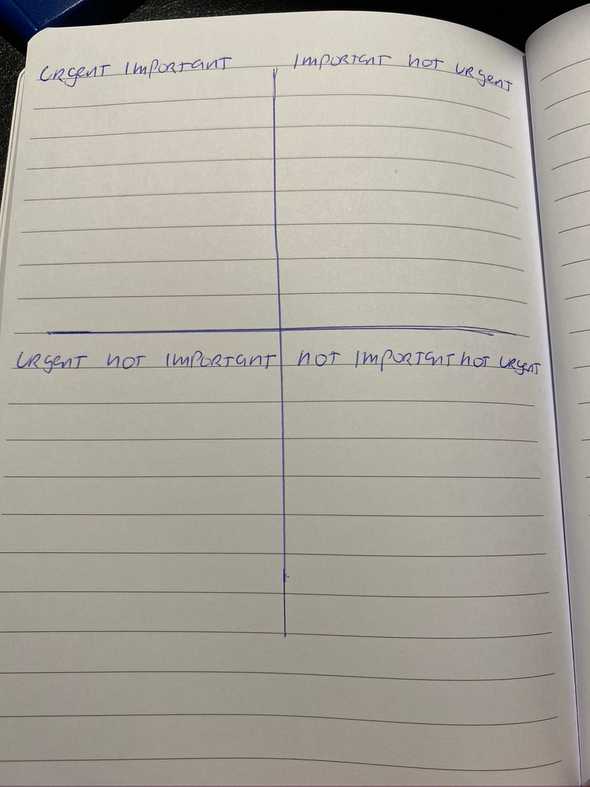 Urgent Important
Important not urgent
Urgent not Important
not Important not urgent